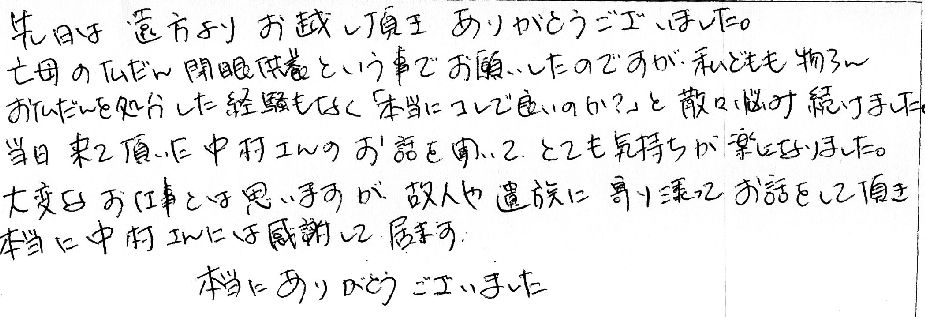 先日は 遠方より お越し頂き ありがとうございました。
亡母の仏だん 閉眼供養という事でお願いしたのですが 私どもも 物ろん
お仏だんを処分した経験もなく「本当にコレで良いのか?」と 散々悩み続けました。
当日 来て頂いた 中村さんの お話を聞いて とても気持ちが 楽になりました。
大変な お仕事とは思いますが 故人や 遺族に 寄り添って お話をして頂き
本当に中村さんには感謝して居ます。
本当にありがとうございました